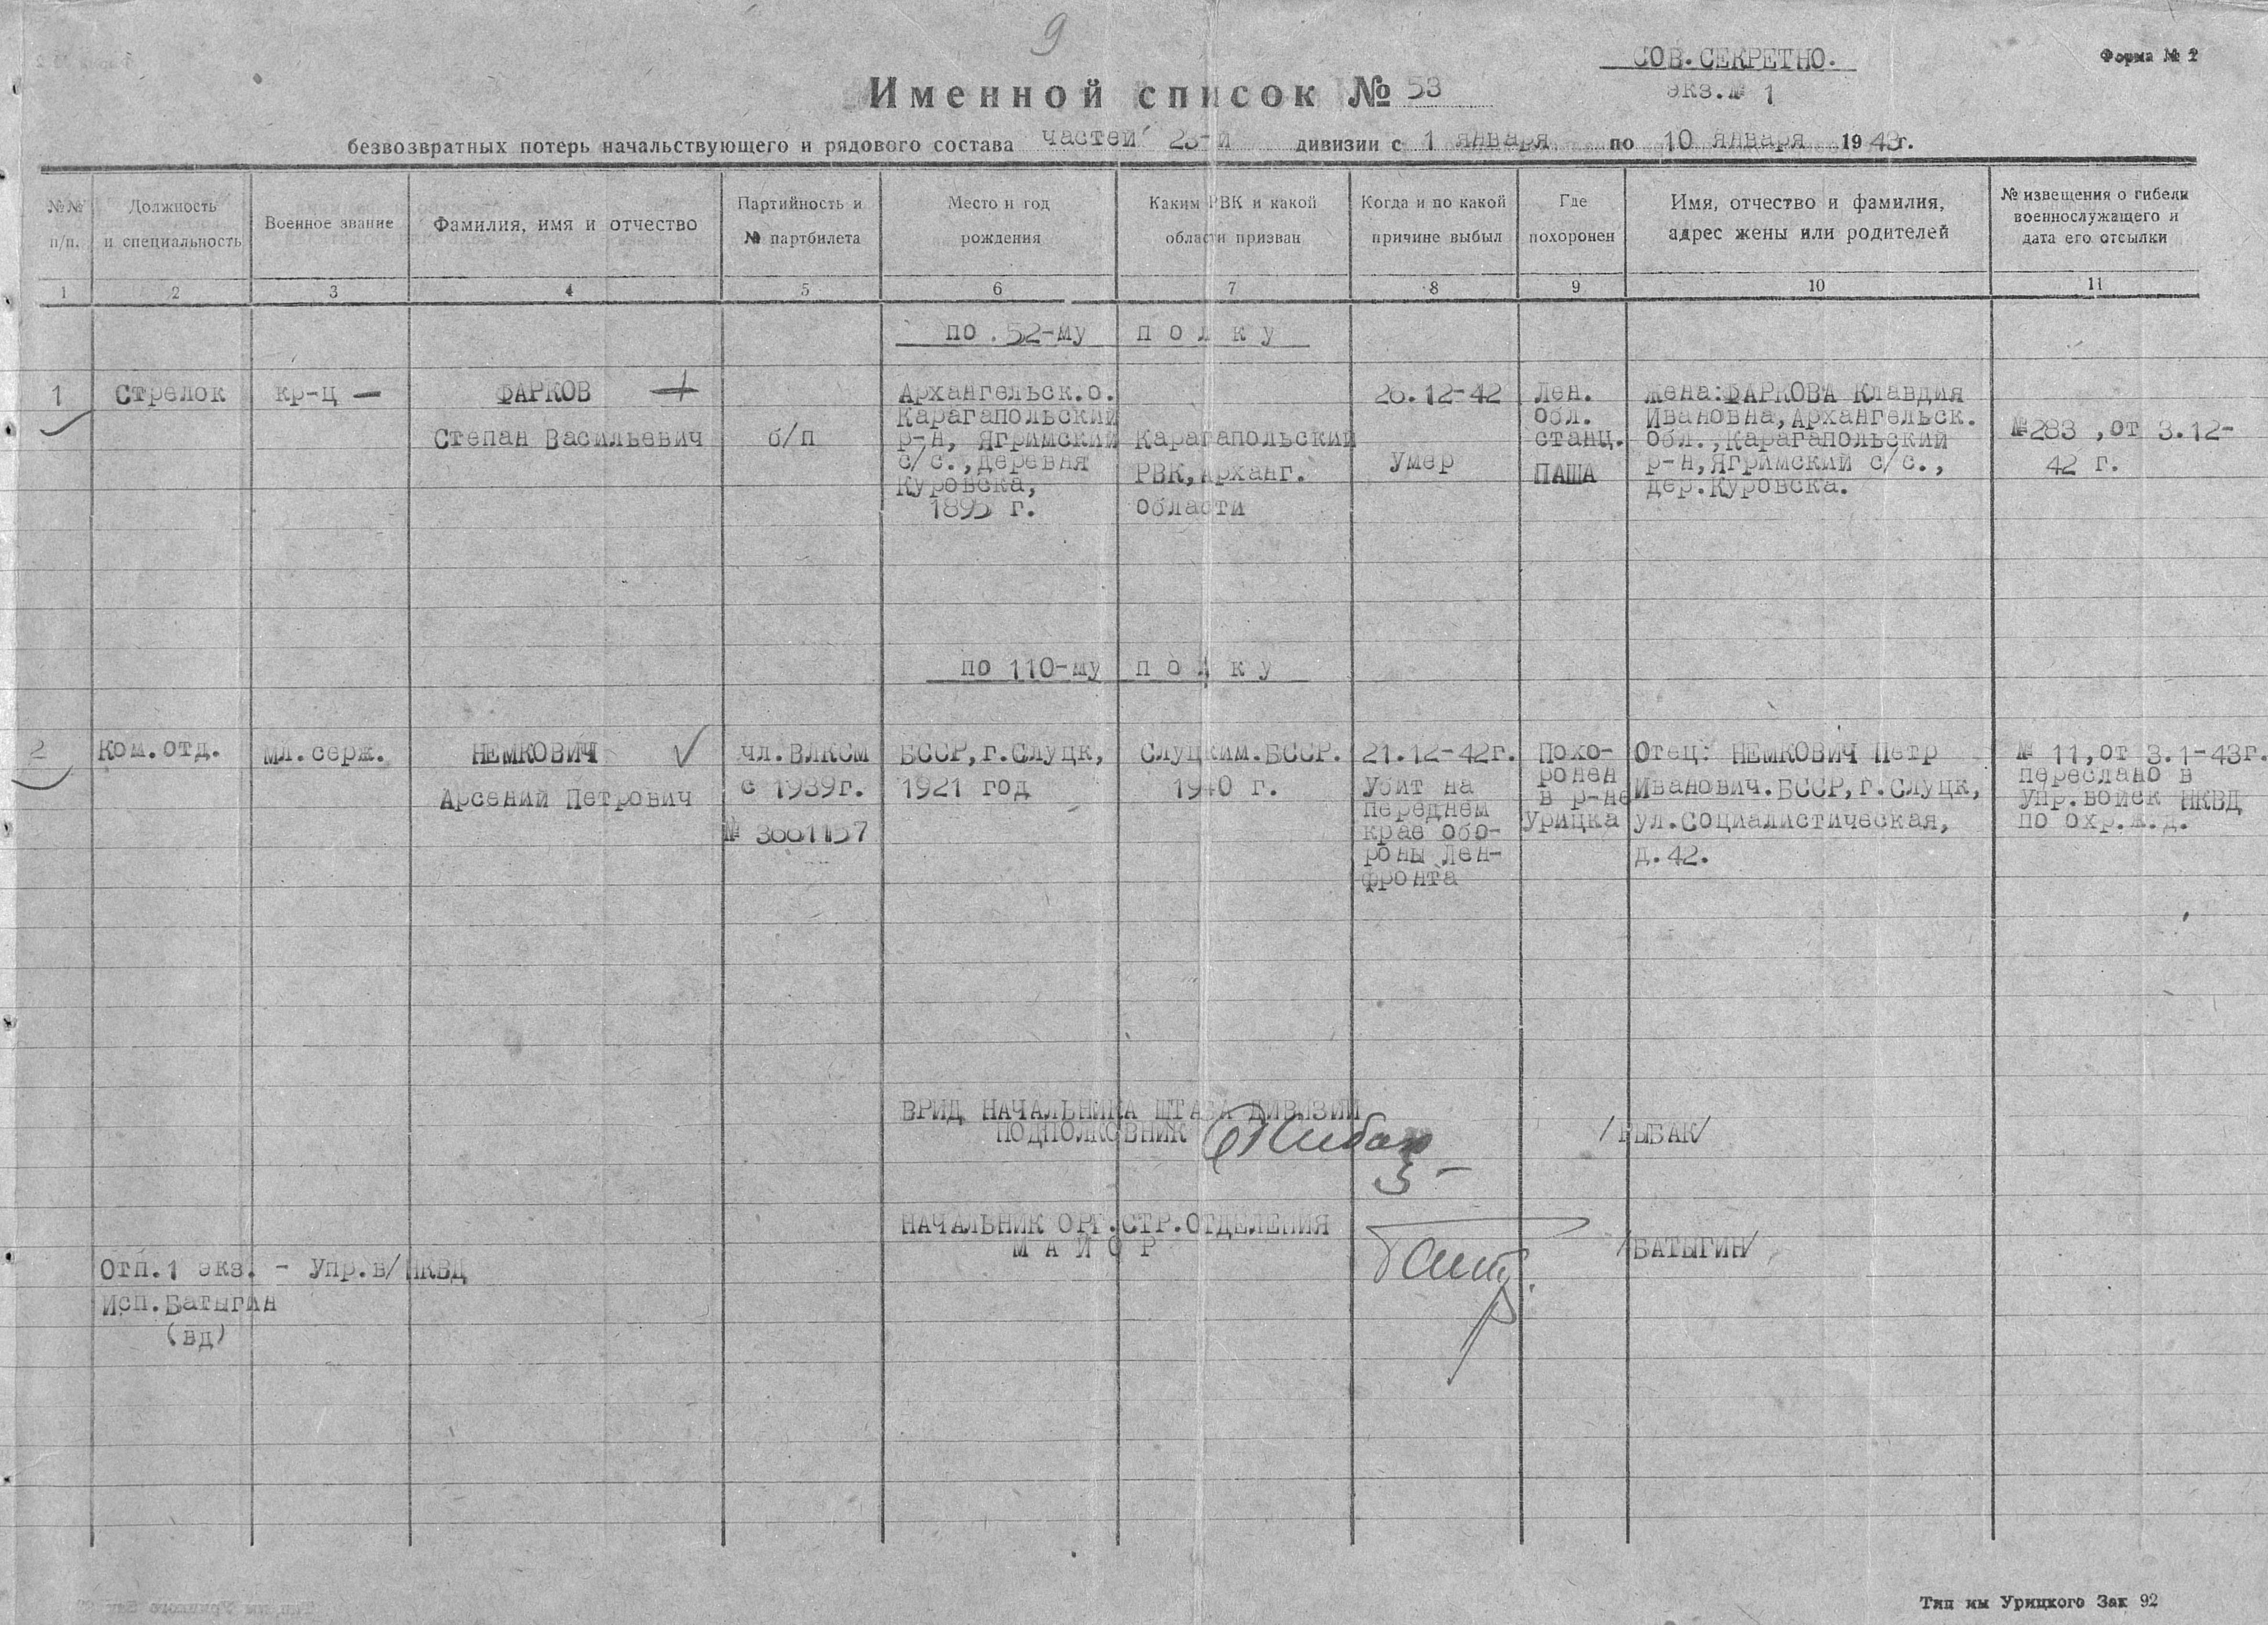 9
СОВ.СЕКРЕТНО.
Форма № 2
экз.№ 1
Именной список № 53
безвозвратных потерь начальствующего и рядового состава частей 23-й дивизии с 1 января по 10 января 1943г.
№№ п/п.
Должность и специальность
Военное звание
Фамилия, имя и отчество
Партийность и № партбилета
Место и год рождения
Каким РВК и какой области призван
Когда и по какой причине выбыл
Где похоронен
Имя, отчество и фамилия, адрес жены или родителей
№ извещения о гибели военнослужащего и дата его отсылки
1 2 3 4 5 6 7 8 9 10 11
по 52-му полку
1
Стрелок
кр-ц —
ФАРКОВ +
Степан Васильевич
б/п
Архангельск.о.
Карагапольский
р-н, Ягримский
с/с.,деревня
Куровска,
1895 г.
Карагапольский
РВК,Арханг.
области
26.12-42
умер
Лен.
обл.
станц.
ПАША
жена:ФАРКОВА Клавдия
Ивановна,Архангельск.
обл.,Карагапольский
р-н,Ягримский с/с.,
дер.Куровска.
№283 ,от 3.12-
42 г.
по 110-му полку
2
Ком.отд.
мл.серж.
НЕМКОВИЧ ✓
Арсений Петрович
чл.ВЛКСМ
с 1939г.
№
БССР,г.Слуцк,
1921 год
Слуцким.БССР.
1940 г.
21.12-42г.
Убит на
переднем
крае обо-
роны Лен-
фронта
Похо-
ронен
в р-не
Урицка
Отец: НЕМКОВИЧ Петр
Иванович.БССР,г.Слуцк,
ул.Социалистическая,
д.42.
№ 11,от 3.1-43г.
переслано в
Упр.войск НКВД
по охр.ж.д.
ВРИД НАЧАЛЬНИКА ШТАБА ДИВИЗИИ
ПОДПОЛКОВНИК /РЫБАК/
НАЧАЛЬНИК ОРГ.СТР.ОТДЕЛЕНИЯ
МАЙОР /БАТЫГИН/
Отп.1 экз. - Упр.в/НКВД
Исп.Батыгин
(вд)
Тип им Урицкого Зак 92